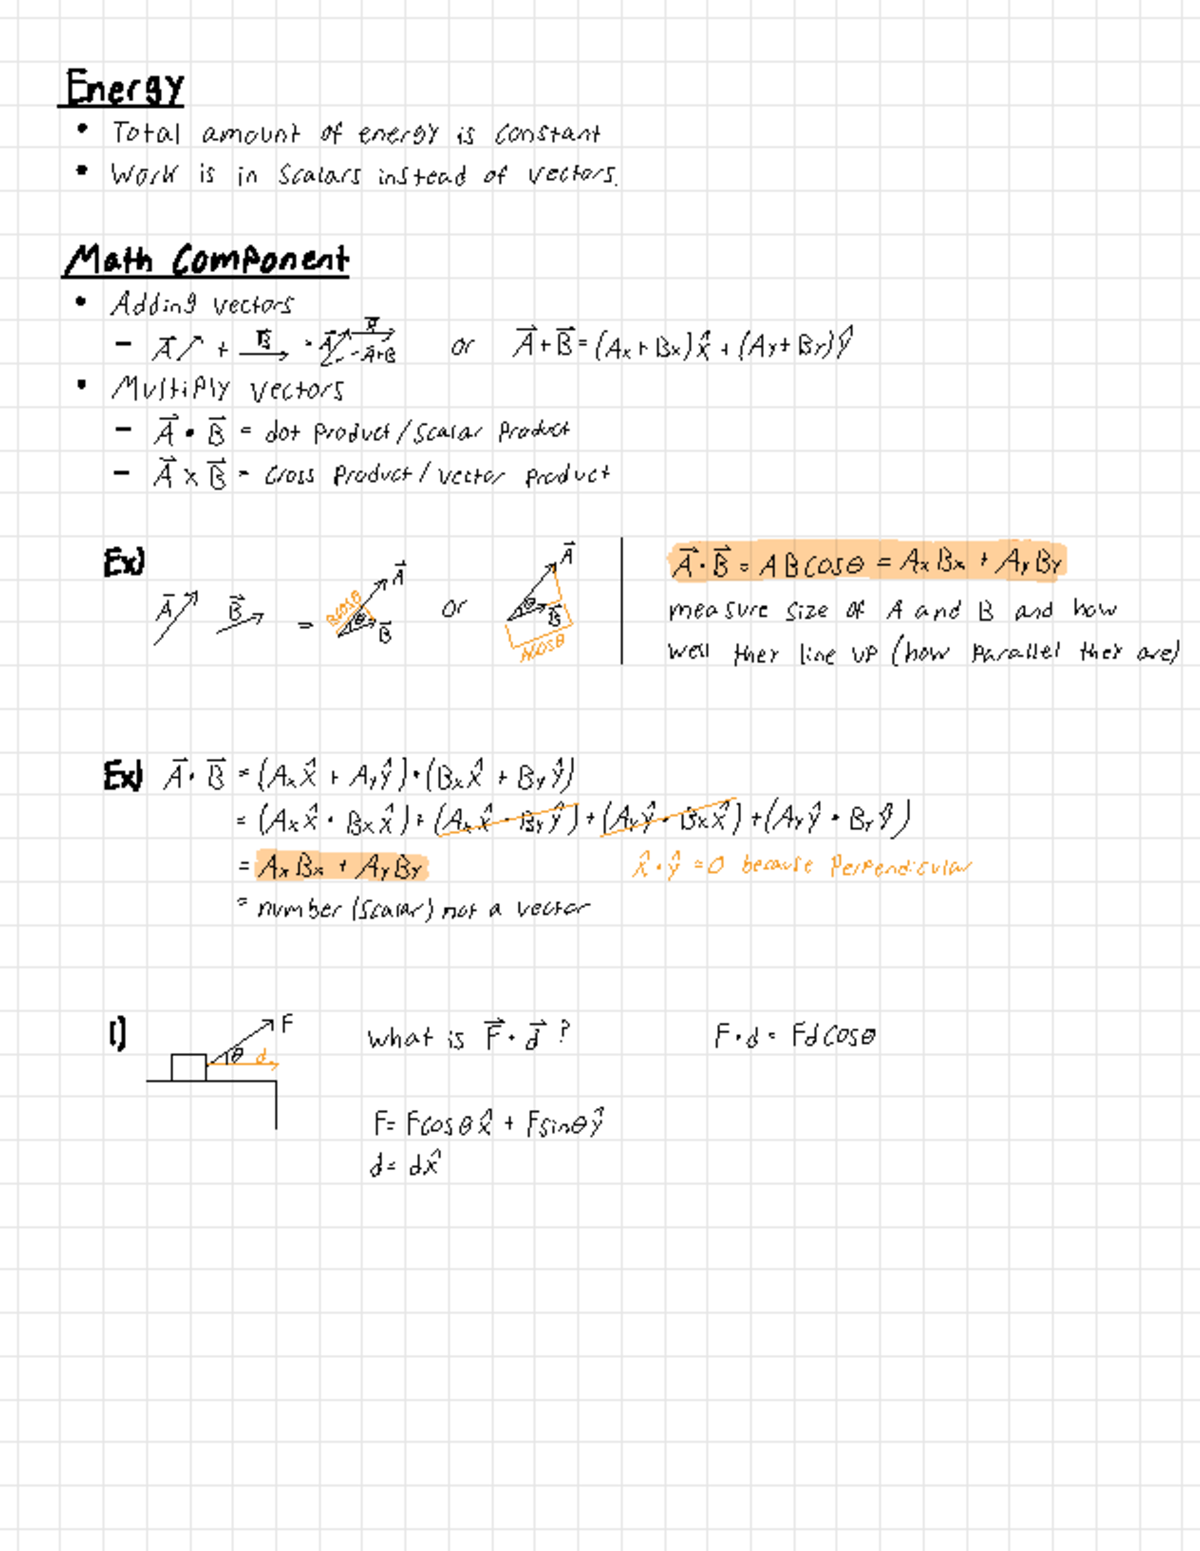 Energy
• Total amount of energy is constant
• Work is in Scalars instead of vectors.
Math Component
• Adding vectors
– A⃗ + B⃗ = A⃗ B⃗ A+B or A⃗ + B⃗ = (Ax + Bx)x̂ + (Ay + By)ŷ
• Multiply vectors
– A⃗ • B⃗ = dot product / Scalar product
– A⃗ x B⃗ = Cross Product / vector product
Ex) A⃗ B⃗ = Bcosθ θ A⃗ B⃗ or A⃗ θ B⃗ Acosθ
A⃗ · B⃗ = ABcosθ = AxBx + AyBy
measure size of A and B and how
well they line up (how parallel they are)
Ex) A⃗ · B⃗ = (Axx̂ + Ayŷ) • (Bxx̂ + Byŷ)
= (Axx̂ • Bxx̂) + (Axx̂ • Byŷ) + (Ayŷ • Bxx̂) + (Ayŷ • Byŷ)
= AxBx + AyBy x̂ • ŷ = 0 because Perpendicular
= number (Scalar) not a vector
1) F θ d What is F⃗ · d⃗ ? F • d = Fdcosθ
F = Fcosθx̂ + Fsinθŷ
d = dx̂